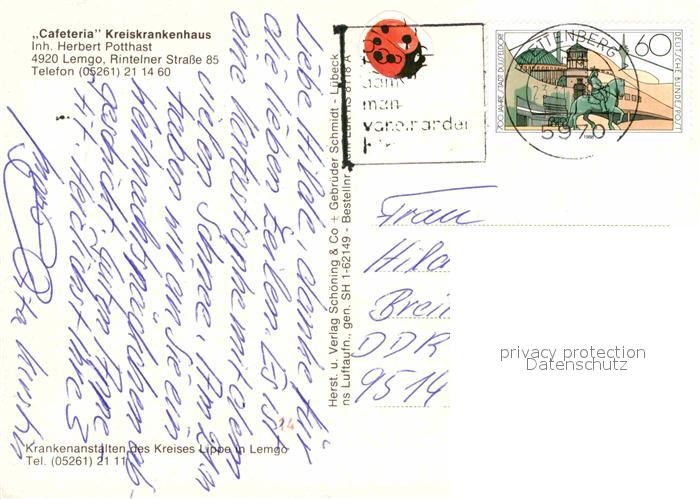 „Cafeteria" Kreiskrankenhaus
Inh. Herbert Potthast
4920 Lemgo, Rintelner Straße 85
Telefon (05261) 21 14 60
Liebe Hilde, danke für
die lieben Zeilen. Es ist
eine Katastrophe mit dem
vielen Schnee, im
haben wir an Sie ein
Weihnachtspäckchen ab-
geschickt. Guten
Herzlichst Ihre
Rita
14
Krankenanstalten des Kreises Lippe in Lemgo
Tel. (05261) 21 11
Herst. u. Verlag Schöning & Co + Gebrüder Schmidt - Lübeck
ns Luftaufn., gen. SH 1-62149 - Bestellnr
man
voneinander
TTENBERG
5970
60
DEUTSCHE BUNDESPOST
700 JAHRE STADT DÜSSELDORF
1988
Frau
Hild
Brei
DDR
9514
privacy protection
Datenschutz